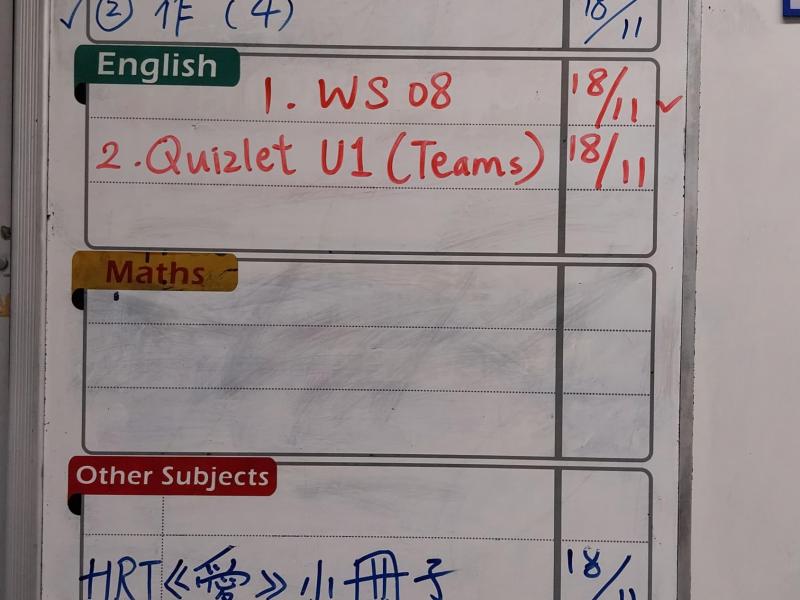 ✓ ② 作 (4) 18/11
English
1. WS 08 18/11 ✓
2. Quizlet U1 (Teams) 18/11
Maths
Other Subjects
HRT《愛》小冊子 18/11